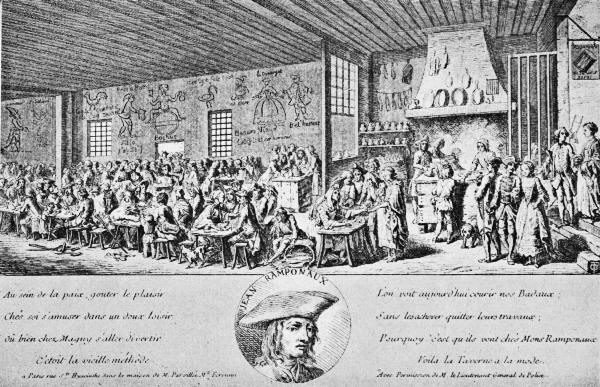 JEAN RAMPONAUX
Au sein de la paix, goûter le plaisir
Chés soi s'amuser dans un doux loisir
Où bien chez Magny s'aller divertir
C'etoit la vieille méthode
a Paris rue St. Hyacinthe dans la maison de M.
L'on voit aujourd'hui courir nos Badaux;
Sans les achever quitter leurs travaux;
Pourquoy? c'est qu'ils vont chés Mons Ramponaux
Voila la Taverne a la mode.
Avec Permission de M. le Lieutenant General de Police.